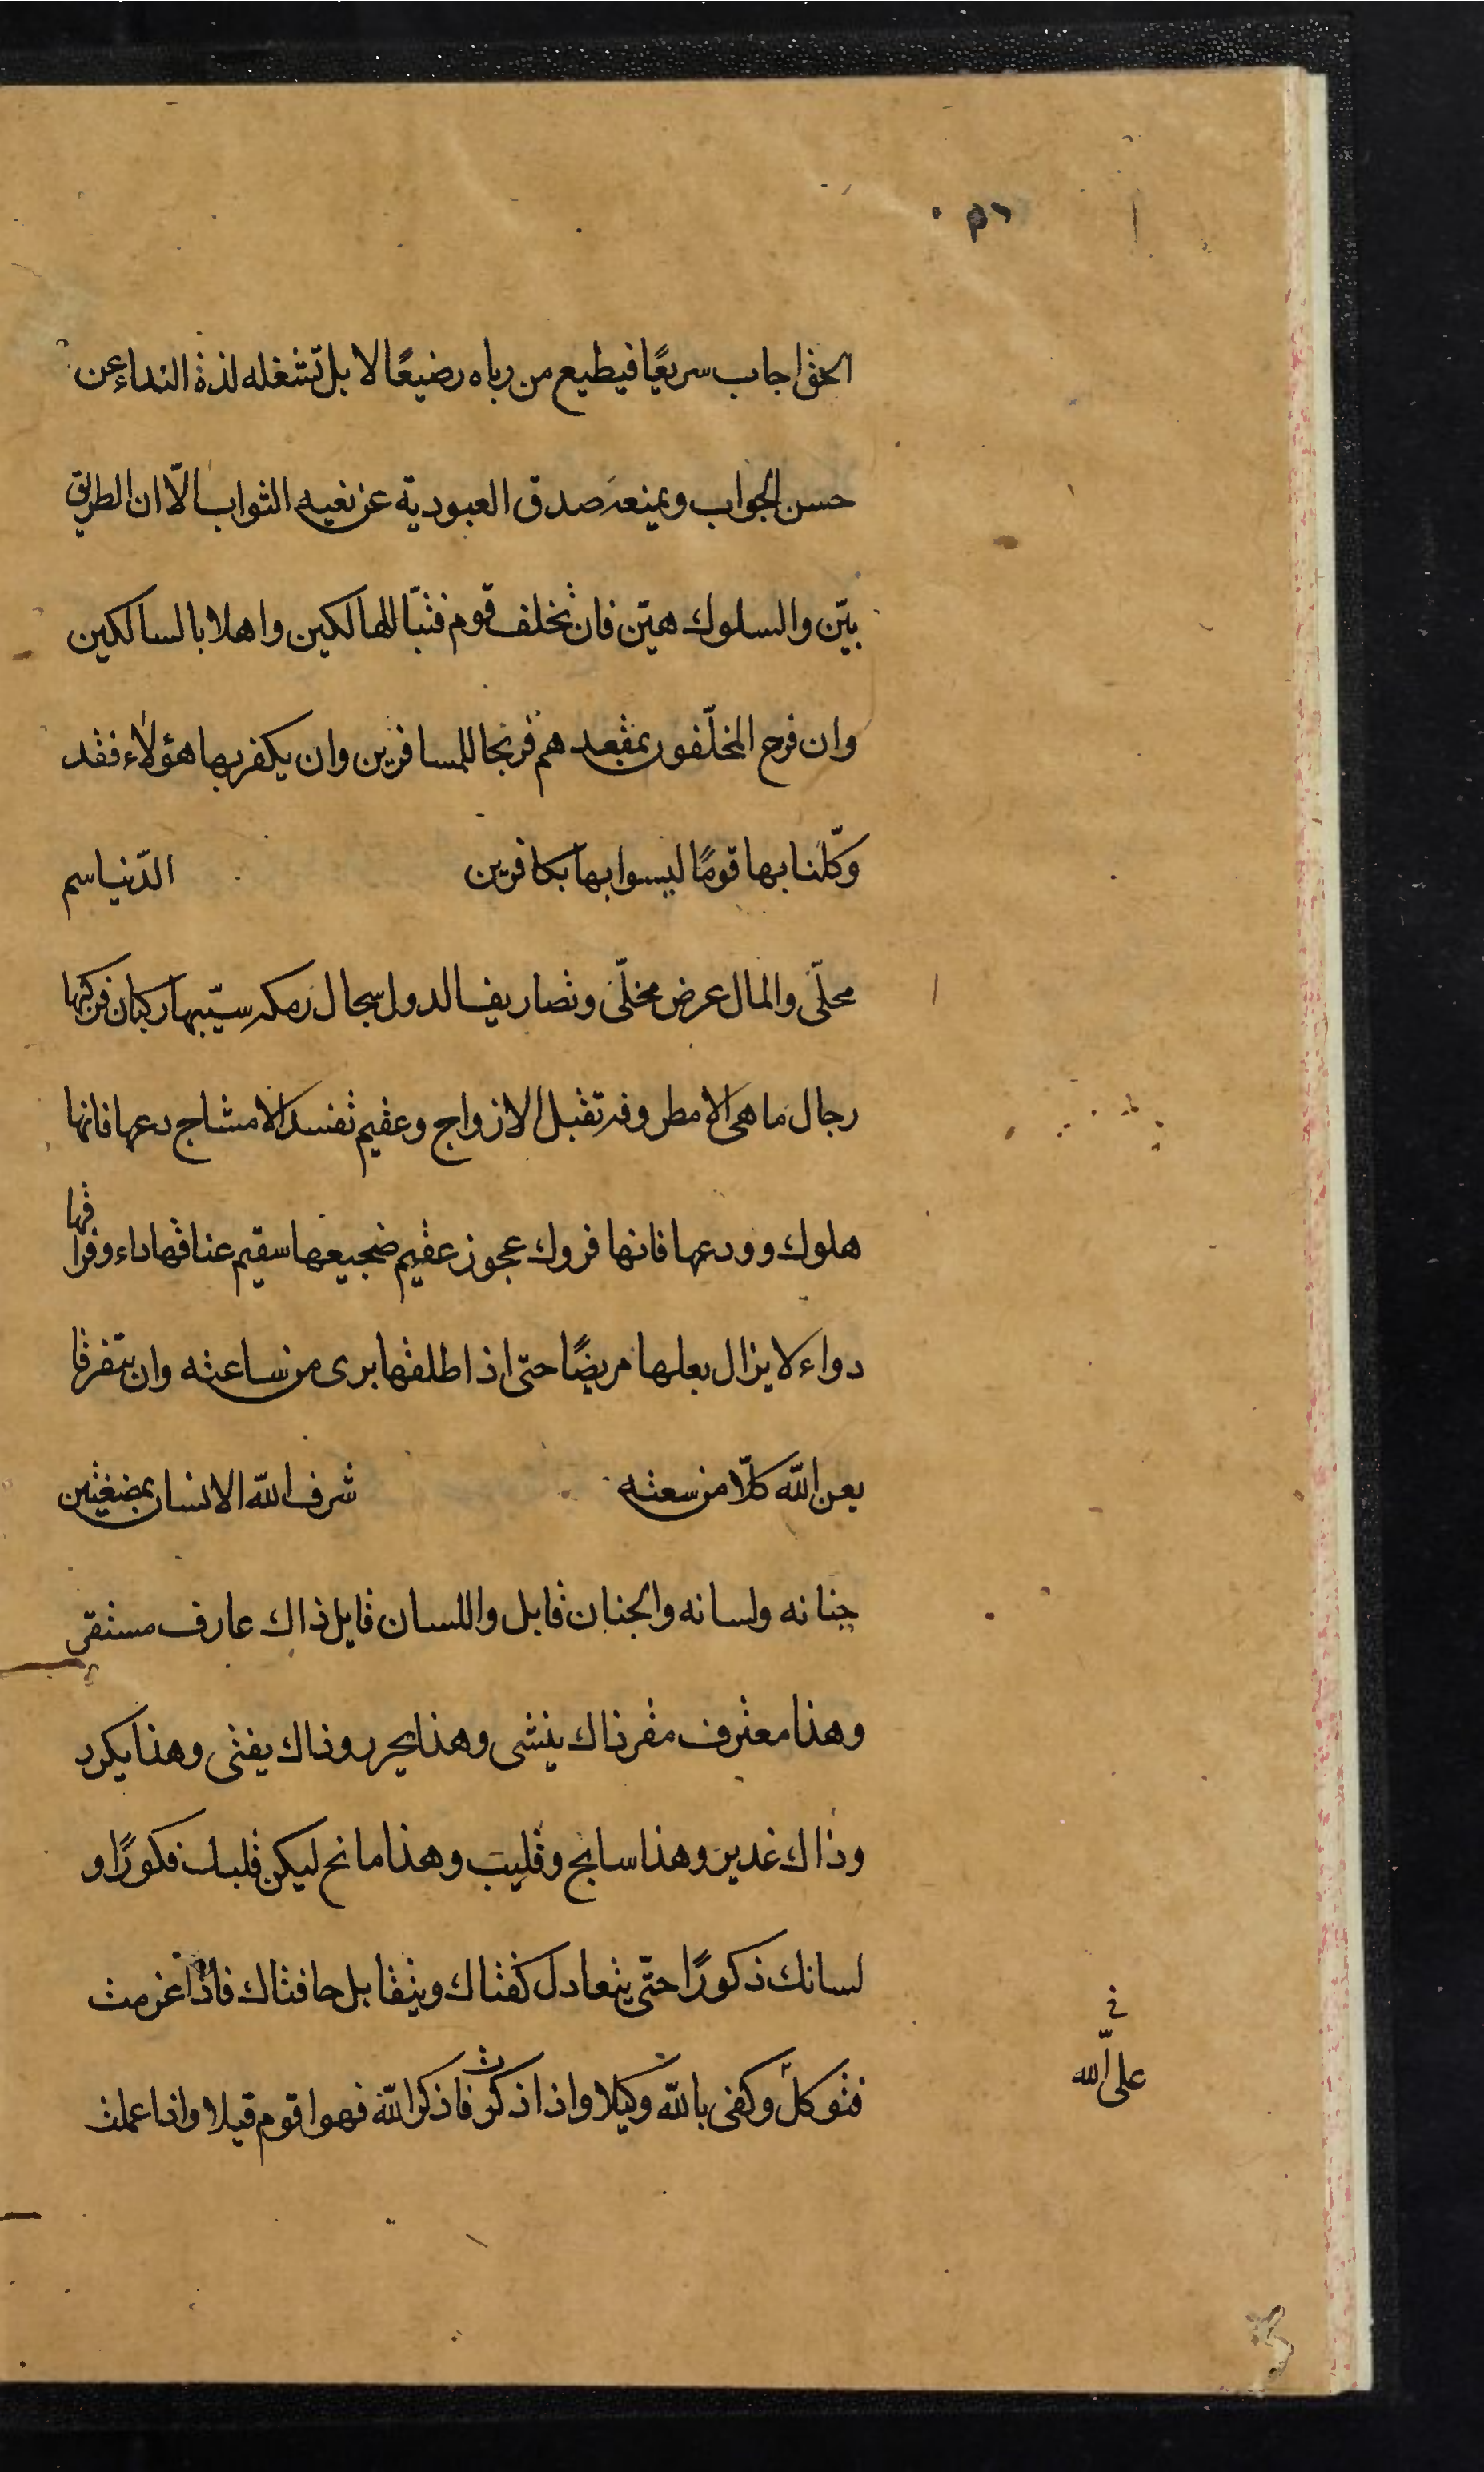 الحق اجاب سريعًا فيطيع من رباه رضيعًا لا بل تشغله لذة النداء عن
حسن الجواب ويمنعه صدق العبودية عن نغيه الثواب الّا ان الطريق
بيّن والسلوك هيّن فان تخلف قوم فتبّا للهالكين واهلا بالسالكين
وان فرح المخلّفون بمقعدهم فرنجا للمسافرين وان يكفر بها هؤلاء فقد
وكّلنا بها قومًا ليسوا بها بكافرين الدّنيا سم
محلّى والمال عرض مخلّى وتصاريف الدول سجال رمكه سيّبها ركبان فركبها
رجال ما هى الا مطروفه تقبل الازواج وعقيم تفسد الامشاج دعها فانها
هلوك وودعها فانها فروك عجوز عقيم ضجيعها سقيم عناقها داء وفراقها
دواء لا يزال بعلها مريضًا حتى اذا طلقها برى من ساعته وان يتفرقا
يعن الله كلّا من سعته شرف الله الانسان بمضغتين
جنانه ولسانه والجنان قابل واللسان قايل ذاك عارف مستقر
وهذا معترف مقر ذاك ينشى وهذا يحرر وذاك يفتى وهذا يكرر
وذاك غدير وهذا سايح وقليب وهذا مانح ليكن قلبك فكورًا و
لسانك ذكورًا حتّى يتعادل كفتاك ويتقابل حافتاك فاذا عزمت
فتوكل وكفى بالله وكيلا واذا ذكرت فاذكر الله فهو اقوم قيلا واذا عملت
على الله